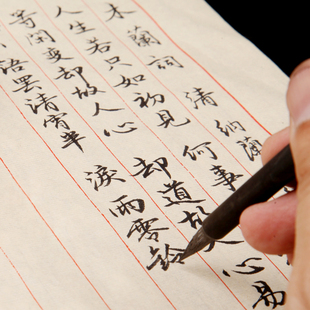 木蘭詞 清 納蘭
人生若只如初見 何事
等閑變却故人心 却道故人心易
語罢清宵半 淚雨零鈴